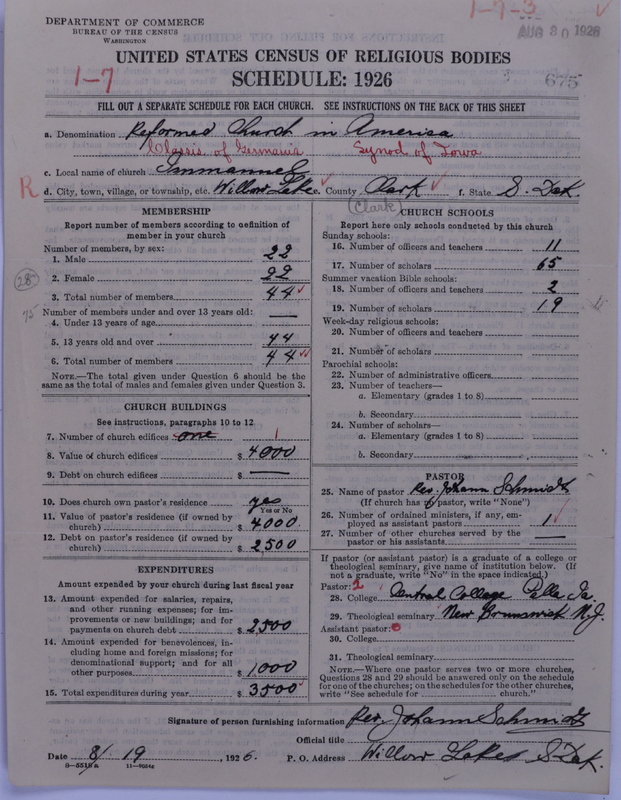 DEPARTMENT OF COMMERCE
BUREAU OF THE CENSUS
WASHINGTON
1-7-3
AUG 30 1926
UNITED STATES CENSUS OF RELIGIOUS BODIES
SCHEDULE: 1926
1-7
675
FILL OUT A SEPARATE SCHEDULE FOR EACH CHURCH. SEE INSTRUCTIONS ON THE BACK OF THIS SHEET
a. Denomination Reformed Church in America
Classis of Germania Synod of Iowa
c. Local name of church Immanuel
R d. City, town, village, or township, etc. Willow Lake e. County Clark f. State S. Dak.
(Clark)
MEMBERSHIP
Report number of members according to definition of
member in your church
Number of members, by sex:
1. Male 22
2. Female 22
3. Total number of members 44
Number of members under and over 13 years old:
4. Under 13 years of age —
5. 13 years old and over 44
6. Total number of members 44
NOTE.—The total given under Question 6 should be the
same as the total of males and females given under Question 3.
CHURCH BUILDINGS
See instructions, paragraphs 10 to 12
7. Number of church edifices one 1
8. Value of church edifices $ 4000
9. Debt on church edifices $ —
10. Does church own pastor's residence yes
Yes or No
11. Value of pastor's residence (if owned by
church) $ 4000
12. Debt on pastor's residence (if owned by
church) $ 2500
EXPENDITURES
Amount expended by your church during last fiscal year
13. Amount expended for salaries, repairs,
and other running expenses; for im-
provements or new buildings; and for
payments on church debt $ 2500
14. Amount expended for benevolences, in-
cluding home and foreign missions; for
denominational support; and for all
other purposes $ 1,000
15. Total expenditures during year $ 3500
CHURCH SCHOOLS
Report here only schools conducted by this church
Sunday schools:
16. Number of officers and teachers 11
17. Number of scholars 65
Summer vacation Bible schools:
18. Number of officers and teachers 2
19. Number of scholars 19
Week-day religious schools:
20. Number of officers and teachers
21. Number of scholars
Parochial schools:
22. Number of administrative officers
23. Number of teachers—
a. Elementary (grades 1 to 8)
b. Secondary
24. Number of scholars—
a. Elementary (grades 1 to 8)
b. Secondary
PASTOR
25. Name of pastor Rev. Johann Schmidt
(If church has no pastor, write "None")
26. Number of ordained ministers, if any, em-
ployed as assistant pastors 1
27. Number of other churches served by the
pastor or his assistants
If pastor (or assistant pastor) is a graduate of a college or
theological seminary, give name of institution below. (If
not a graduate, write "No" in the space indicated.)
Pastor: 2
28. College Central College Pella Ia.
29. Theological seminary New Brunswick N.J.
Assistant pastor: 0
30. College
31. Theological seminary
NOTE.—Where one pastor serves two or more churches,
Questions 28 and 29 should be answered only on the schedule
for one of the churches; on the schedules for the other churches,
write "See schedule for church."
Signature of person furnishing information Rev. Johann Schmidt
Official title
Date 8/19, 1926. P. O. Address Willow Lakes S. Dak.